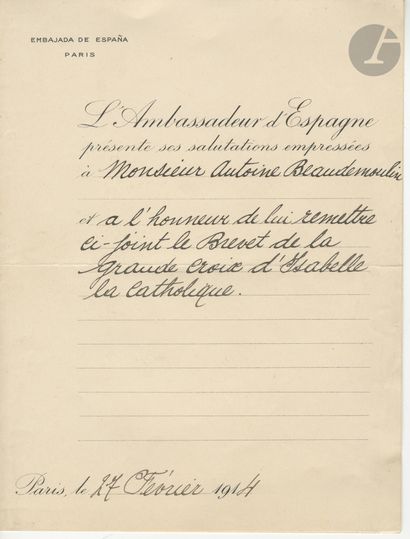 EMBAJADA DE ESPAÑA
PARIS
L'Ambassadeur d'Espagne
présente ses salutations empressées
à Monsieur Antoine Beaudemoulin
et a l'honneur de lui remettre
ci-joint le Brevet de la
grande croix d'Isabelle
la Catholique.
Paris, le 27 Février 1914